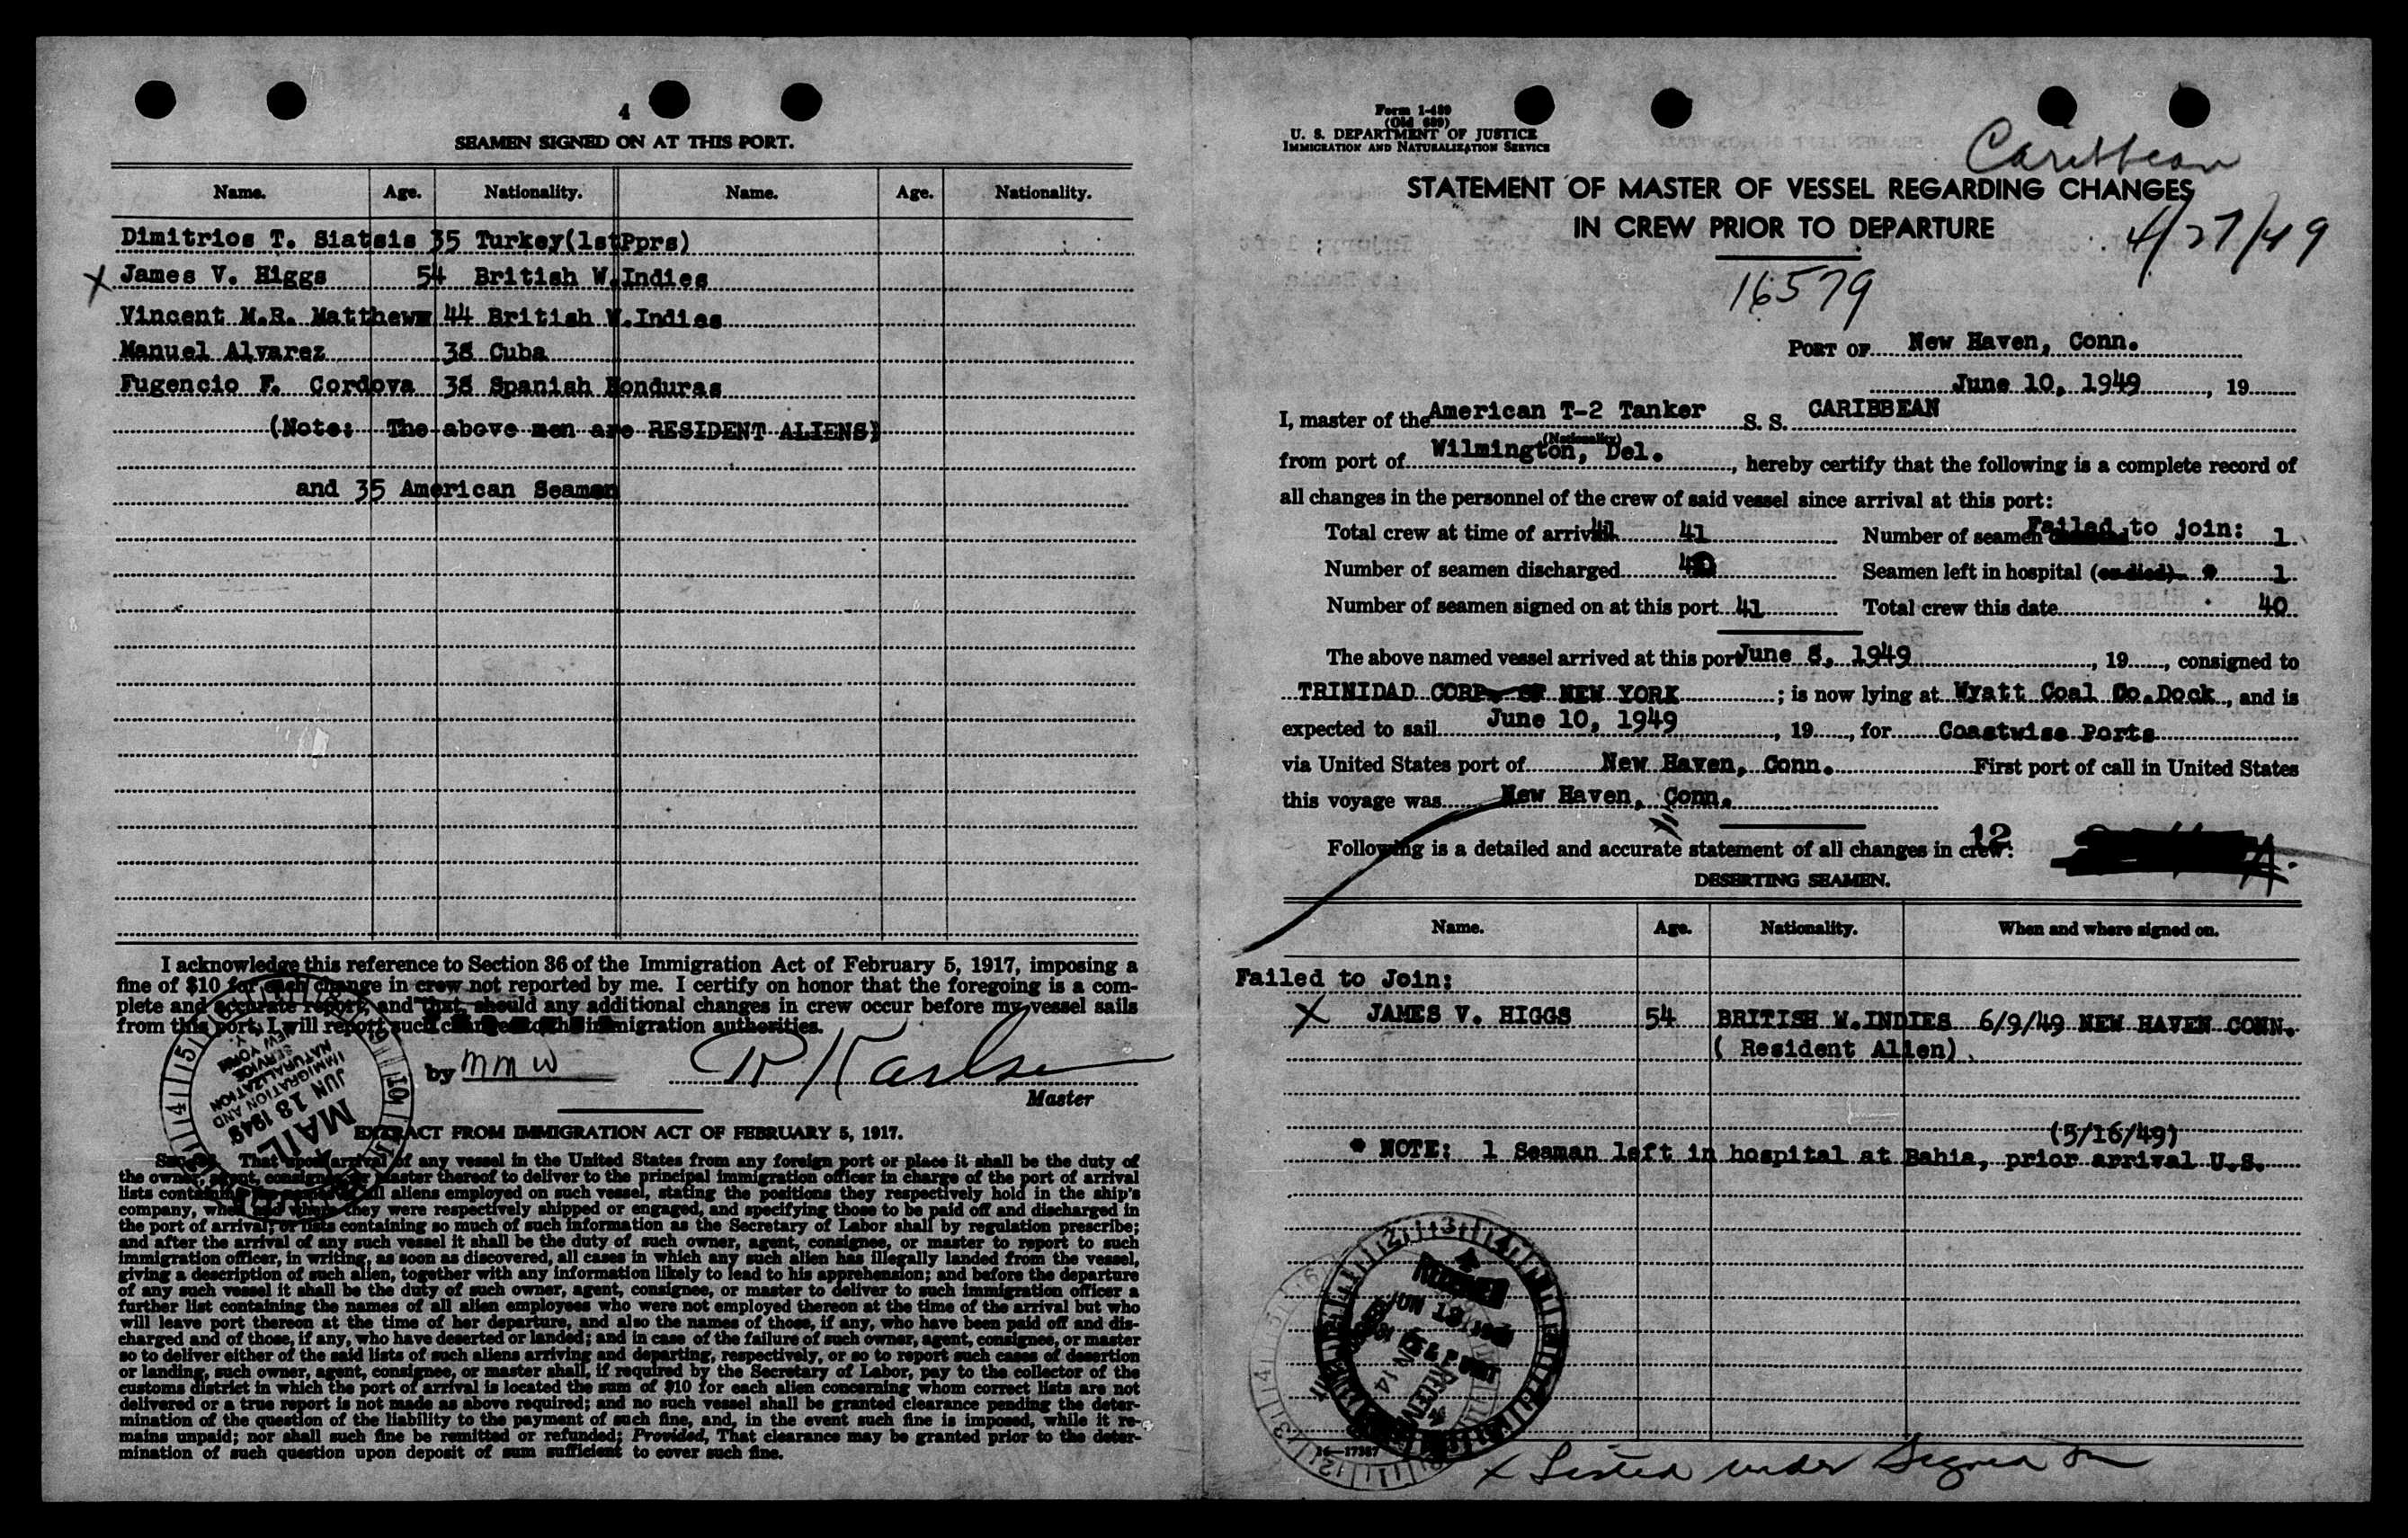 4
SEAMEN SIGNED ON AT THIS PORT.
Name. Age. Nationality. Name. Age. Nationality.
Dimitrios T. Siatsis 35 Turkey(1stPprs)
X James V. Higgs 54 British W.Indies
Vincent M.R. Matthews 44 British W.Indies
Manuel Alvarez 38 Cuba
Fugencio F. Cordova 38 Spanish Honduras
(Note: The above men are RESIDENT ALIENS)
and 35 American Seamen
I acknowledge this reference to Section 36 of the Immigration Act of February 5, 1917, imposing a
fine of $10 for each change in crew not reported by me. I certify on honor that the foregoing is a com-
plete and accurate report, and that should any additional changes in crew occur before my vessel sails
from this port, I will report such changes to the immigration authorities.
by mmw R Karlsen
Master
MAIL
JUN 18 1949
IMMIGRATION AND
NATURALIZATION
SERVICE
NEW YORK
EXTRACT FROM IMMIGRATION ACT OF FEBRUARY 5, 1917.
That upon arrival of any vessel in the United States from any foreign port or place it shall be the duty of
the owner, agent, consignee, or master thereof to deliver to the principal immigration officer in charge of the port of arrival
lists containing the names of all aliens employed on such vessel, stating the positions they respectively hold in the ship's
company, when and where they were respectively shipped or engaged, and specifying those to be paid off and discharged in
the port of arrival; or lists containing so much of such information as the Secretary of Labor shall by regulation prescribe;
and after the arrival of any such vessel it shall be the duty of such owner, agent, consignee, or master to report to such
immigration officer, in writing, as soon as discovered, all cases in which any such alien has illegally landed from the vessel,
giving a description of such alien, together with any information likely to lead to his apprehension; and before the departure
of any such vessel it shall be the duty of such owner, agent, consignee, or master to deliver to such immigration officer a
further list containing the names of all alien employees who were not employed thereon at the time of the arrival but who
will leave port thereon at the time of her departure, and also the names of those, if any, who have been paid off and dis-
charged and of those, if any, who have deserted or landed; and in case of the failure of such owner, agent, consignee, or master
so to deliver either of the said lists of such aliens arriving and departing, respectively, or so to report such cases of desertion
or landing, such owner, agent, consignee, or master shall, if required by the Secretary of Labor, pay to the collector of the
customs district in which the port of arrival is located the sum of $10 for each alien concerning whom correct lists are not
delivered or a true report is not made as above required; and no such vessel shall be granted clearance pending the deter-
mination of the question of the liability to the payment of such fine, and, in the event such fine is imposed, while it re-
mains unpaid; nor shall such fine be remitted or refunded; Provided, That clearance may be granted prior to the deter-
mination of such question upon deposit of sum sufficient to cover such fine.
Form I-489
(Old 689)
U. S. DEPARTMENT OF JUSTICE
IMMIGRATION AND NATURALIZATION SERVICE
Caribbean
STATEMENT OF MASTER OF VESSEL REGARDING CHANGES
IN CREW PRIOR TO DEPARTURE
4/27/49
16579
PORT OF New Haven, Conn.
June 10, 1949, 19
I, master of the American T-2 Tanker S. S. CARIBBEAN
(Nationality)
from port of Wilmington, Del., hereby certify that the following is a complete record of
all changes in the personnel of the crew of said vessel since arrival at this port:
Total crew at time of arrival 41 41 Number of seamen Failed to join: 1
Number of seamen discharged 40 Seamen left in hospital (or died) * 1
Number of seamen signed on at this port 41 Total crew this date 40
The above named vessel arrived at this port June 8, 1949, 19, consigned to
TRINIDAD CORP. OF NEW YORK; is now lying at Wyatt Coal Co.Dock, and is
expected to sail June 10, 1949, 19, for Coastwise Ports
via United States port of New Haven, Conn. First port of call in United States
this voyage was New Haven, Conn.
Following is a detailed and accurate statement of all changes in crew: 12
DESERTING SEAMEN.
Name. Age. Nationality. When and where signed on.
Failed to Join:
X JAMES V. HIGGS 54 BRITISH W.INDIES 6/9/49 NEW HAVEN CONN.
( Resident Alien)
(5/16/49)
* NOTE: 1 Seaman left in hospital at Bahia, prior arrival U.S.
16-17387
x Listed under Signed on